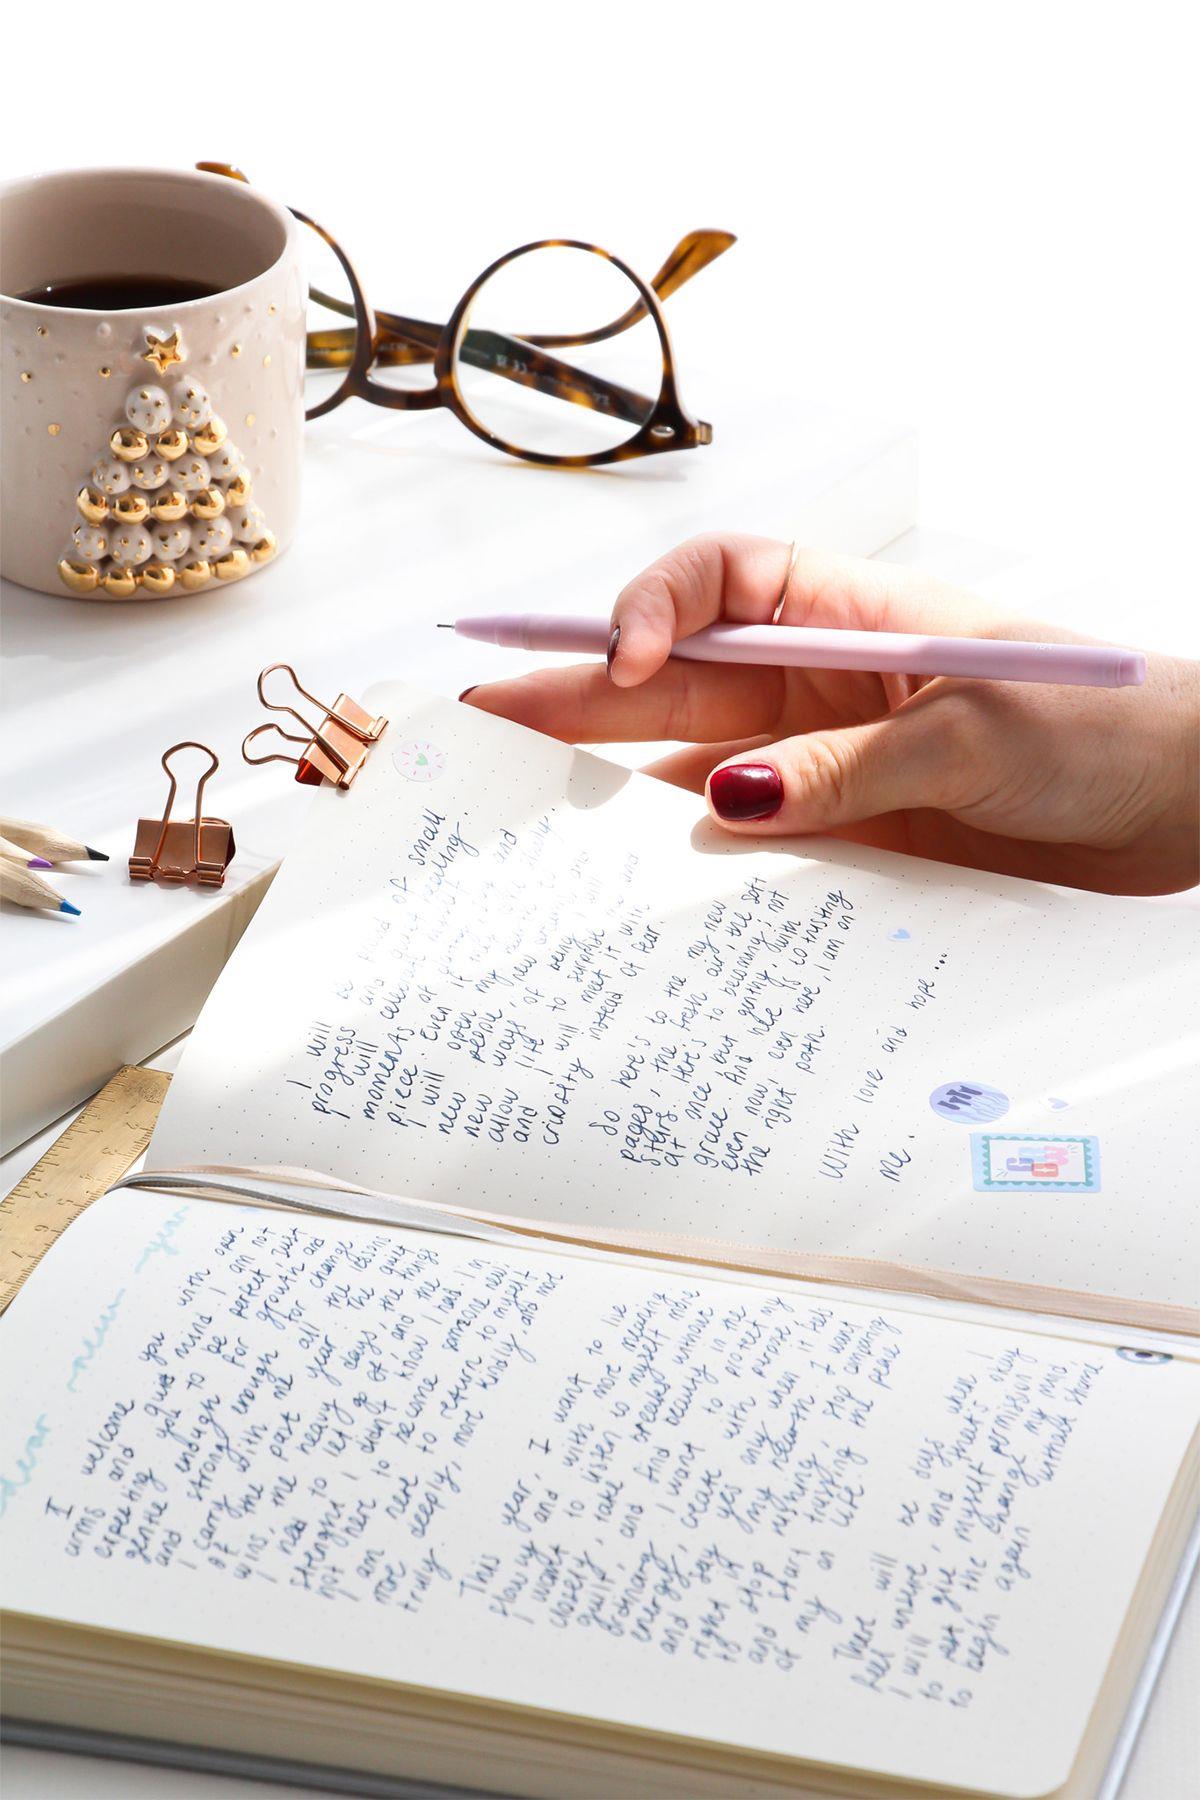 dear new year
I welcome you with open
arms and quiet mind. I am not
expecting you to be perfect, just
gentle enough for growth and
and strong enough for change.
I carry with me all the lessons
of the past year: the quiet
wins, the heavy days, the things
I need to let go of, and the
strenght I didn't know I had. I'm
not here to become someone new;
I am here to return to myself
more deeply, more kindly, and more
truly.
This year, I want to live
slowly and with more meaning
I want to listen to myself more
closely, take breaks without
guilt, and find beauty in the
ordinary. I want to protect my
energy, create with purpose,
and say yes only when it feels
right
and stop rushing, stop
and start trusting the pace
of my life.
There will be days when I
feel unsure, and that's okay
I will give myself permission
to rest, to change my mind,
to begin again without shame.
I will be proud of small
progress and quiet healing.
I will
moments
piece. Even if
I will open my
new people, new
new ways of being. I will
allow life to surprise me and
and I will meet it with
criosity instead of fear.
So here's to the my new
pages, the fresh air, the soft
starts. Here's to becoming; not
at once but gently, with
grace. And here is to trusting
even now, even here, I am on
the right path.
With love and hope...
me.
GROW